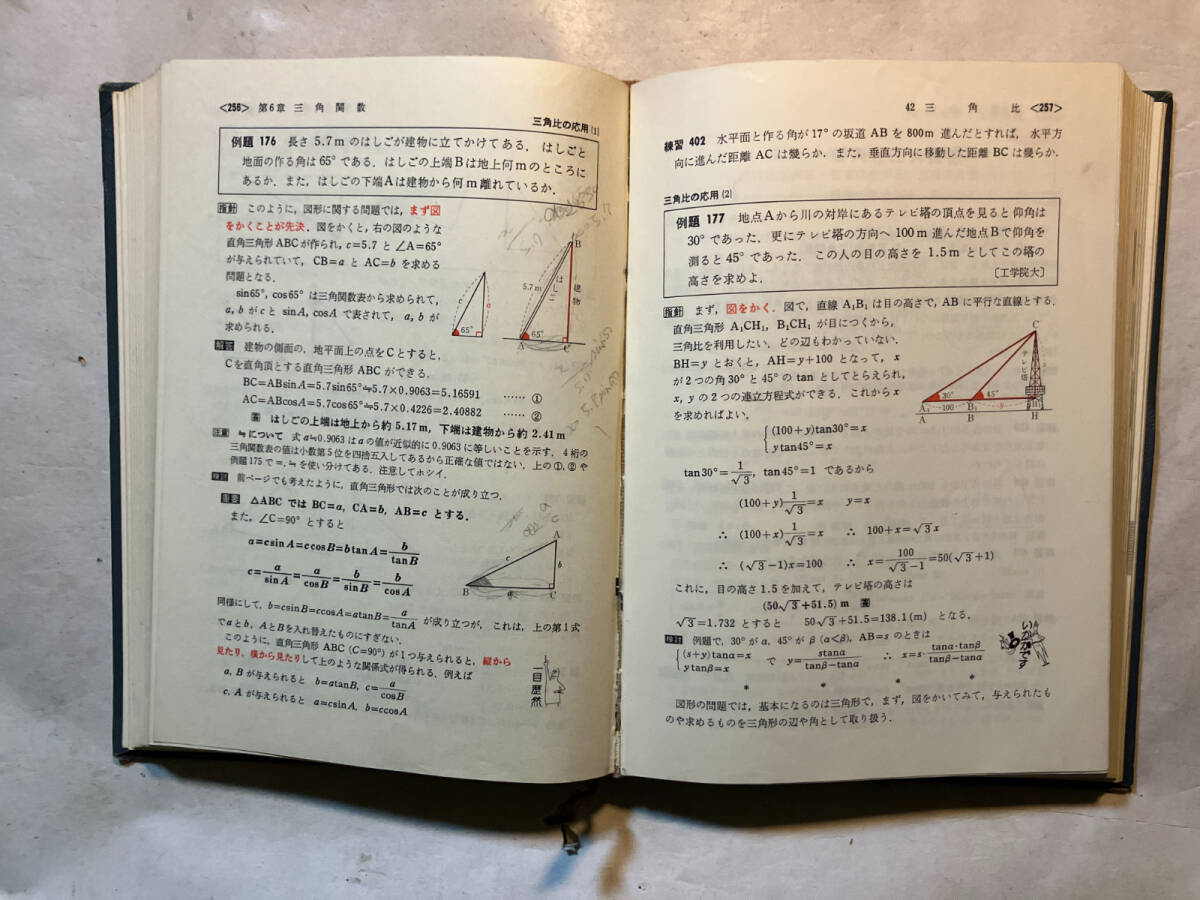 <256> 第6章 三角関数
三角比の応用(1)
例題 176 長さ 5.7m のはしごが建物に立てかけてある. はしごと
地面の作る角は 65° である. はしごの上端Bは地上何mのところに
あるか. また, はしごの下端Aは建物から何m離れているか.
指針 このように, 図形に関する問題では, まず図
をかくことが先決. 図をかくと, 右の図のような
直角三角形 ABC が作られ, c=5.7 と ∠A=65°
が与えられていて, CB=a と AC=b を求める
問題となる.
sin65°, cos65° は三角関数表から求められて,
a, b が c と sinA, cosA で表されて, a, b が
求められる.
c a 65°
5.7m はしご 建物 65° A B C
解答 建物の側面の, 地平面上の点をCとすると,
Cを直角頂とする直角三角形 ABC ができる.
BC=ABsinA=5.7sin65°≒5.7×0.9063=5.16591 …… ①
AC=ABcosA=5.7cos65°≒5.7×0.4226=2.40882 …… ②
答 はしごの上端は地上から約 5.17m, 下端は建物から約 2.41m
注意 ≒について 式 a≒0.9063 は a の値が近似的に 0.9063 に等しいことを示す. 4桁の
三角関数表の値は小数第5位を四捨五入してあるから正確な値ではない. 上の①,②や
例題175で=,≒を使い分けてある. 注意してホシイ.
検討 前ページでも考えたように, 直角三角形では次のことが成り立つ.
重要 △ABC では BC=a, CA=b, AB=c とする.
また, ∠C=90° とすると
a=csinA=ccosB=btanA=b/tanB
c=a/sinA=a/cosB=b/sinB=b/cosA
A B C a b c
同様にして, b=csinB=ccosA=atanB=a/tanA が成り立つが, これは, 上の第1式
でaとb, AとBを入れ替えたものにすぎない.
このように, 直角三角形 ABC (C=90°) が1つ与えられると, 縦から
見たり, 横から見たりして上のような関係式が得られる. 例えば
a, B が与えられると b=atanB, c=a/cosB
c, A が与えられると a=csinA, b=ccosA
一目瞭然
42 三角比 <257>
練習 402 水平面と作る角が 17° の坂道 AB を 800m 進んだとすれば, 水平方
向に進んだ距離 AC は幾らか. また, 垂直方向に移動した距離 BC は幾らか.
三角比の応用(2)
例題 177 地点Aから川の対岸にあるテレビ塔の頂点を見ると仰角は
30° であった. 更にテレビ塔の方向へ 100m 進んだ地点Bで仰角を
測ると 45° であった. この人の目の高さを 1.5m としてこの塔の
高さを求めよ. 〔工学院大〕
指針 まず, 図をかく. 図で, 直線 A₁B₁ は目の高さで, AB に平行な直線とする.
直角三角形 A₁CH₁, B₁CH₁ が目につくから,
三角比を利用したい. どの辺もわかっていない.
BH=y とおくと, AH=y+100 となって, x
が2つの角30°と45°の tan としてとらえられ,
x, y の2つの連立方程式ができる. これから x
を求めればよい.
C テレビ塔 30° 45° A₁ 100 B₁ y H₁ A B H
(100+y)tan30°=x
ytan45°=x
tan30°=1/√3, tan45°=1 であるから
(100+y)1/√3=x y=x
∴ (100+x)1/√3=x ∴ 100+x=√3x
∴ (√3-1)x=100 ∴ x=100/(√3-1)=50(√3+1)
これに, 目の高さ 1.5 を加えて, テレビ塔の高さは
(50√3+51.5) m 答
√3=1.732 とすると 50√3+51.5=138.1(m) となる.
検討 例題で, 30° が α, 45° が β (α<β), AB=s のときは
(s+y)tanα=x
ytanβ=x
で y=stanα/(tanβ-tanα) ∴ x=s・tanα・tanβ/(tanβ-tanα)
いかがです
* * * * *
図形の問題では, 基本になるのは三角形で, まず, 図をかいてみて, 与えられたも
のや求めるものを三角形の辺や角として取り扱う.